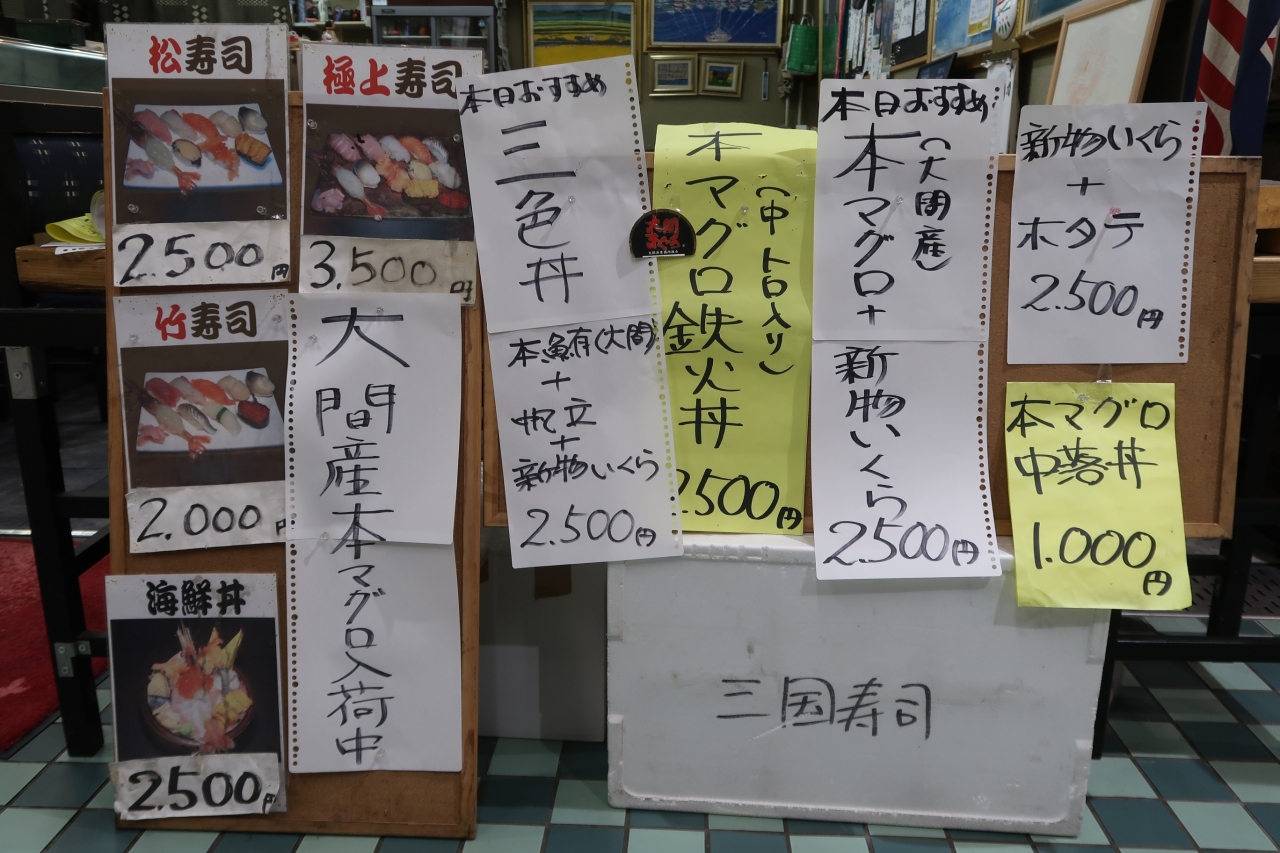 松寿司
2.500円
極上寿司
3,500円
竹寿司
2.000円
大間産本マグロ入荷中
海鮮丼
2.500円
本日おすすめ
三色丼
本鮪(大間)
+
帆立
+
新物いくら
2.500円
大間
まぐろ
本マグロ鉄火丼
(中トロ入り)
2500円
本日おすすめ
(大間産)
本マグロ+
新物いくら
2500円
新物いくら
+
ホタテ
2.500円
本マグロ
中落丼
1.000円
三国寿司